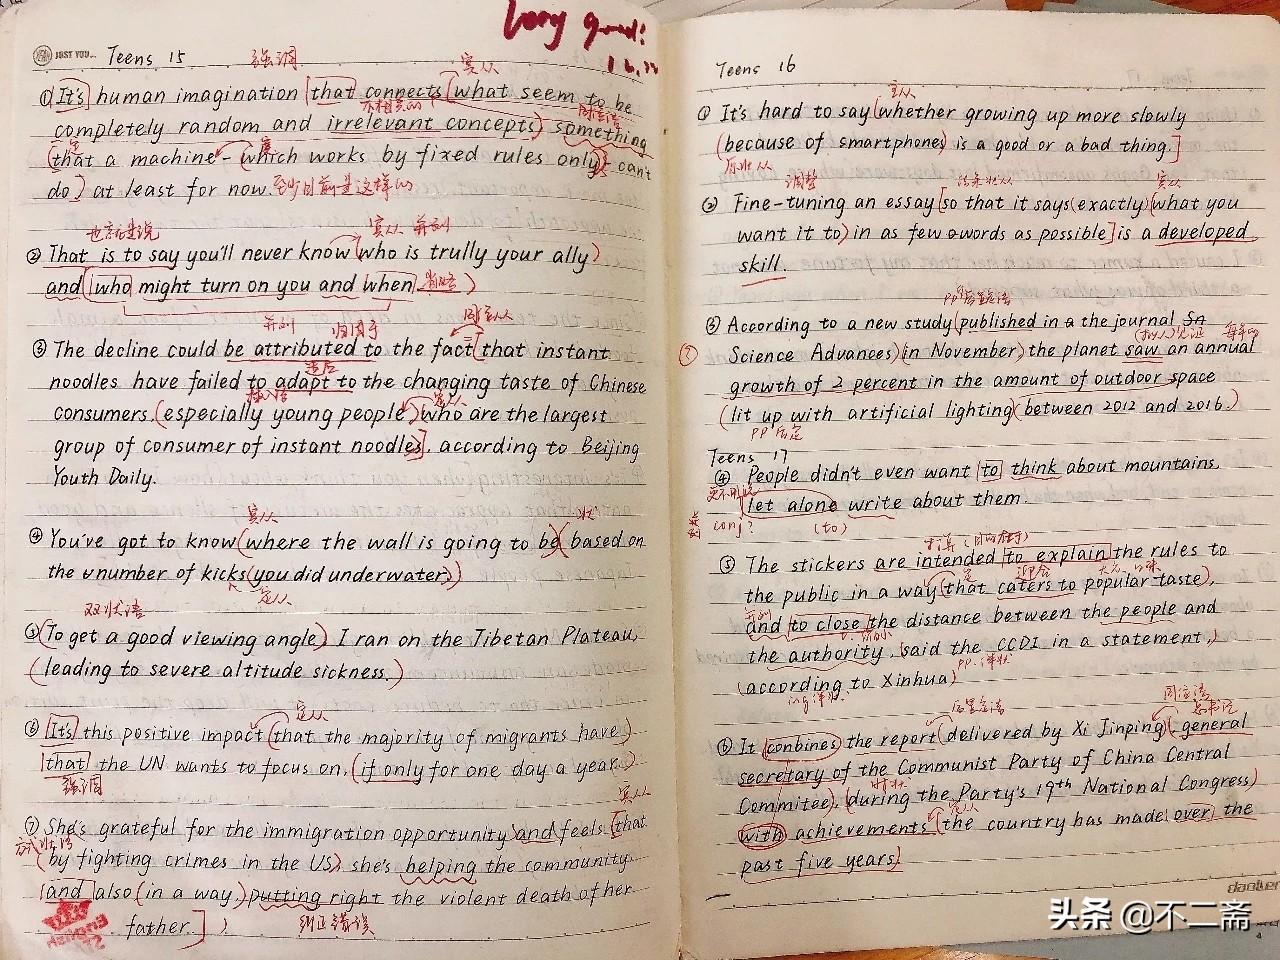 Very good!
JUST YOU... Teens 15
强调 宾从
① It's human imagination that connects what seem to be
不相关的 同位语
completely random and irrelevant concepts) something
(that a machine - which works by fixed rules only) can't
do) at least for now. 至少目前是这样的
也就是说 宾从 并列
② That is to say you'll never know (who is trully your ally)
and (who might turn on you and when 省略)
并列 归因于 同位从
③ The decline could be attributed to the fact [that instant
适应
noodles have failed to adapt to the changing taste of Chinese
插入语 定从
consumers, (especially young people) who are the largest
group of consumer of instant noodles], according to Beijing
Youth Daily.
宾从 状
④ You've got to know (where the wall is going to be) (based on
the number of kicks (you did underwater))
定从
双状语
⑤ (To get a good viewing angle) I ran on the Tibetan Plateau,
(leading to severe altitude sickness.)
定从
⑥ It's this positive impact (that the majority of migrants have)
that the UN wants to focus on, (if only for one day a year.)
强调 宾从
⑦ She's grateful for the immigration opportunity and feels [that
方式状语
(by fighting crimes in the US), she's helping the community
and also (in a way,) putting right the violent death of her
father.]
纠正错误
Teens 16
主从
① It's hard to say [whether growing up more slowly
(because of smartphones) is a good or a bad thing.]
原状从
调整 宾从
② Fine-tuning an essay [so that it says (exactly) (what you
want it to) in as few words as possible] is a developed
skill.
pp后置定语
③ According to a new study (published in the journal
(拟人)见证 每年的
Science Advances) (in November) the planet saw an annual
growth of 2 percent in the amount of outdoor space
(lit up with artificial lighting) (between 2012 and 2016.)
pp后定
Teens 17
④ People didn't even want to think about mountains,
更不用说
let alone write about them.
并列 conj? (to)
打算
⑤ The stickers are intended to explain the rules to
定 迎合 大众口味
the public in a way (that caters to popular taste),
并列
and to close the distance between the people and
v. 缩小
the authority, (said the CCDI in a statement,)
(according to Xinhua)
后置定语 同位语 总书记
⑥ It conbines the report (delivered by Xi Jinping) (general
secretary of the Communist Party of China Central
时状
Commitee), (during the Party's 19th National Congress)
定从
with achievements (the country has made over the
past five years)
danher
头条 @不二斋
4